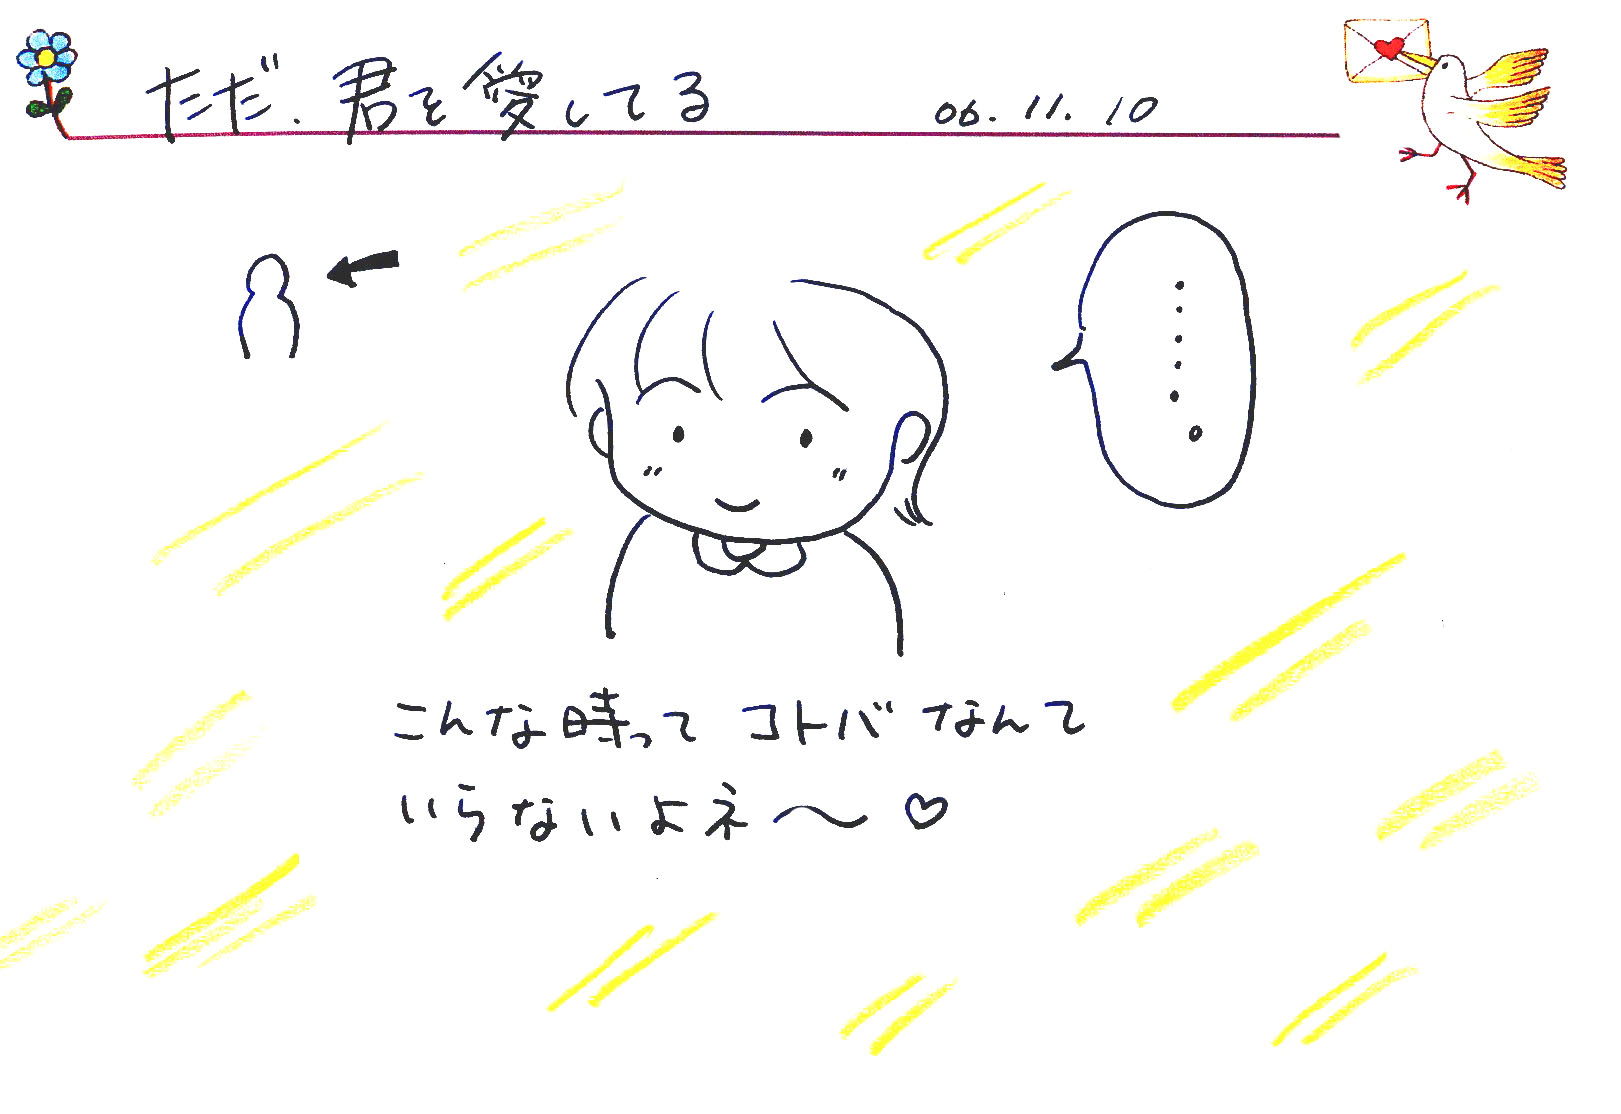 ただ、君を愛してる
06.11.10
・・・・・。
こんな時って コトバ なんて
いらないよネ〜♡